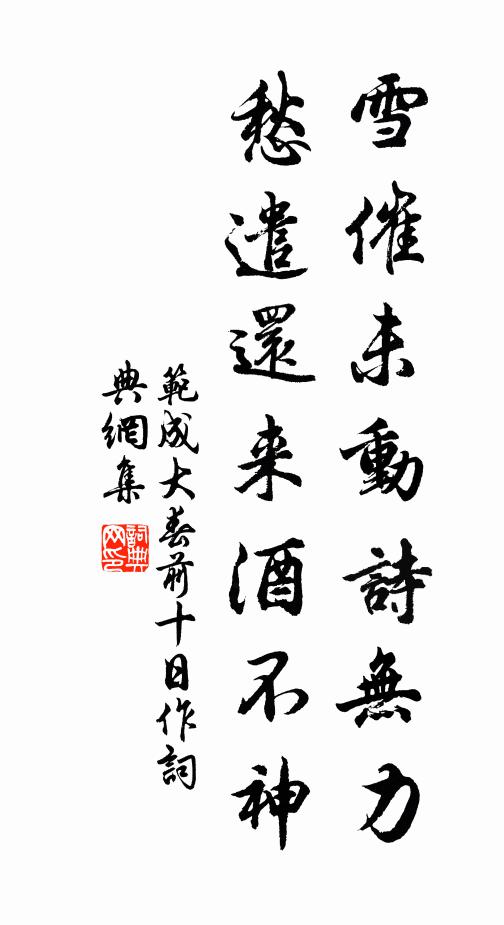 雪催未動詩無力
愁遣還来酒不神
範成大春前十日作詞
典網集
詞典
网印